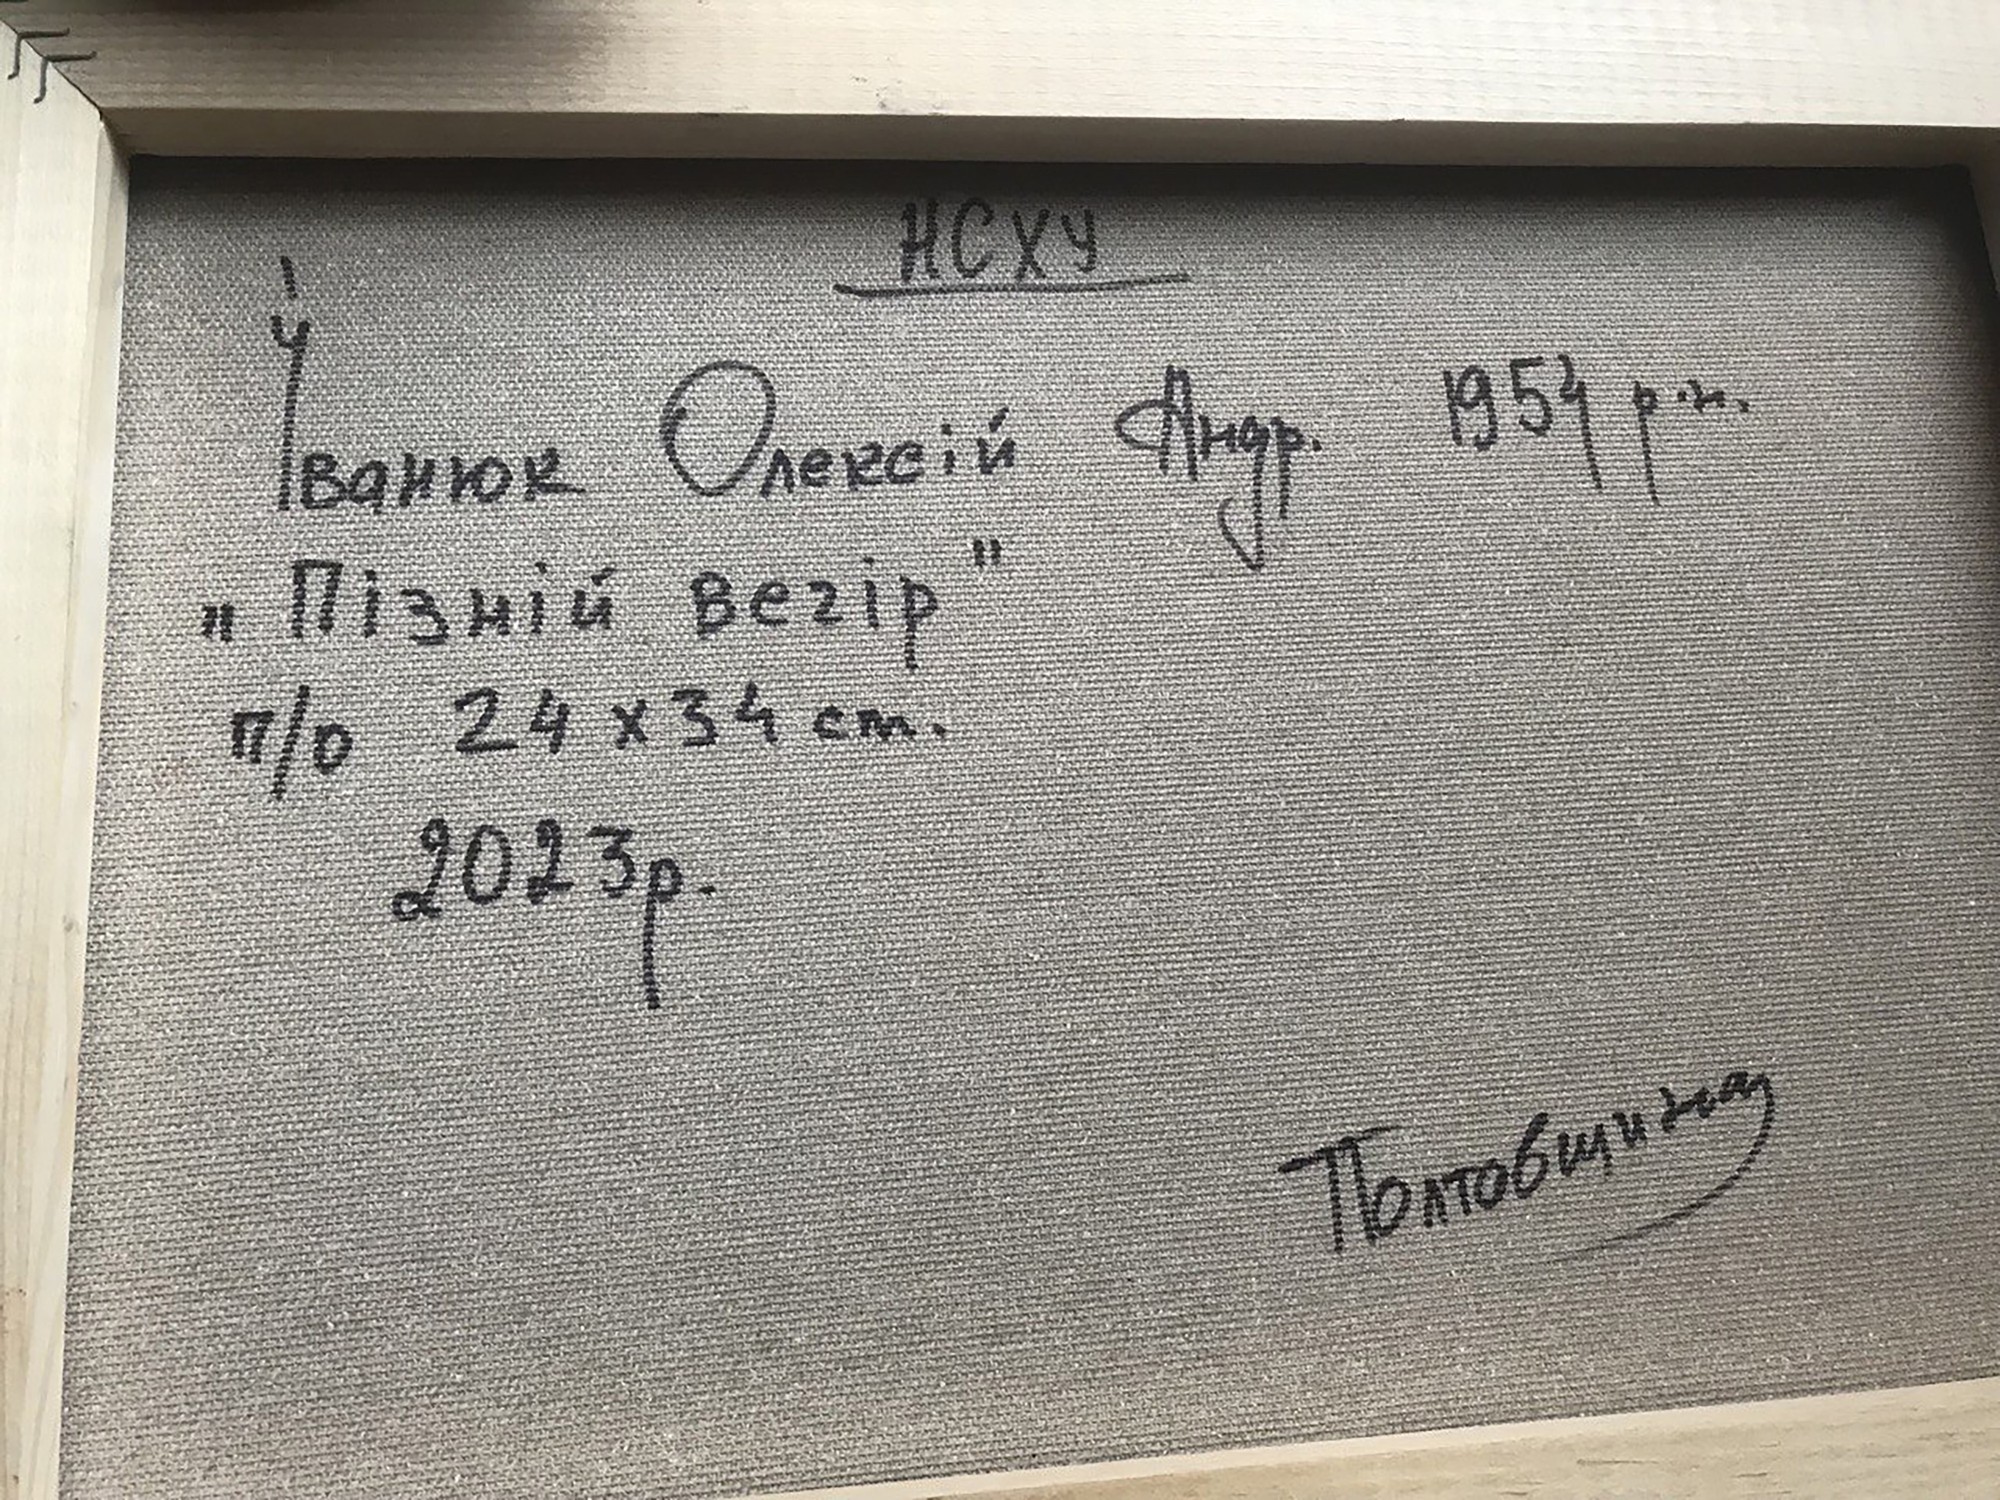 НСХУ
Іванюк Олексій Андр. 1954 р.н.
„Пізній вечір"
п/о 24х34 см.
2023р.
Полтавщина